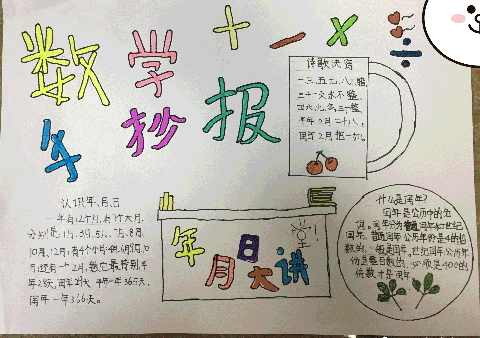 数学
+ − × ÷
手抄报
诗歌快语
一三五七八十腊,
三十一天永不差,
四六九冬三十整,
平年2月二十八,
闰年2月把一加。
认识年、月、日
一年有12个月,有7个大月,
分别是1月、3月、5月、7月、8月、
10月、12月;有4个小月
还有一个2月,
年28天,闰年29天,平年一年365天,
闰年一年366天。
年月日大讲
什么是闰年?
闰年是公历中的名
词。闰年分为普通闰年和世纪
闰年,普通闰年公历年份是4的倍
数的,一般是闰年。世纪闰年公历年
份是整百数的,必须是400的
倍数才是闰年